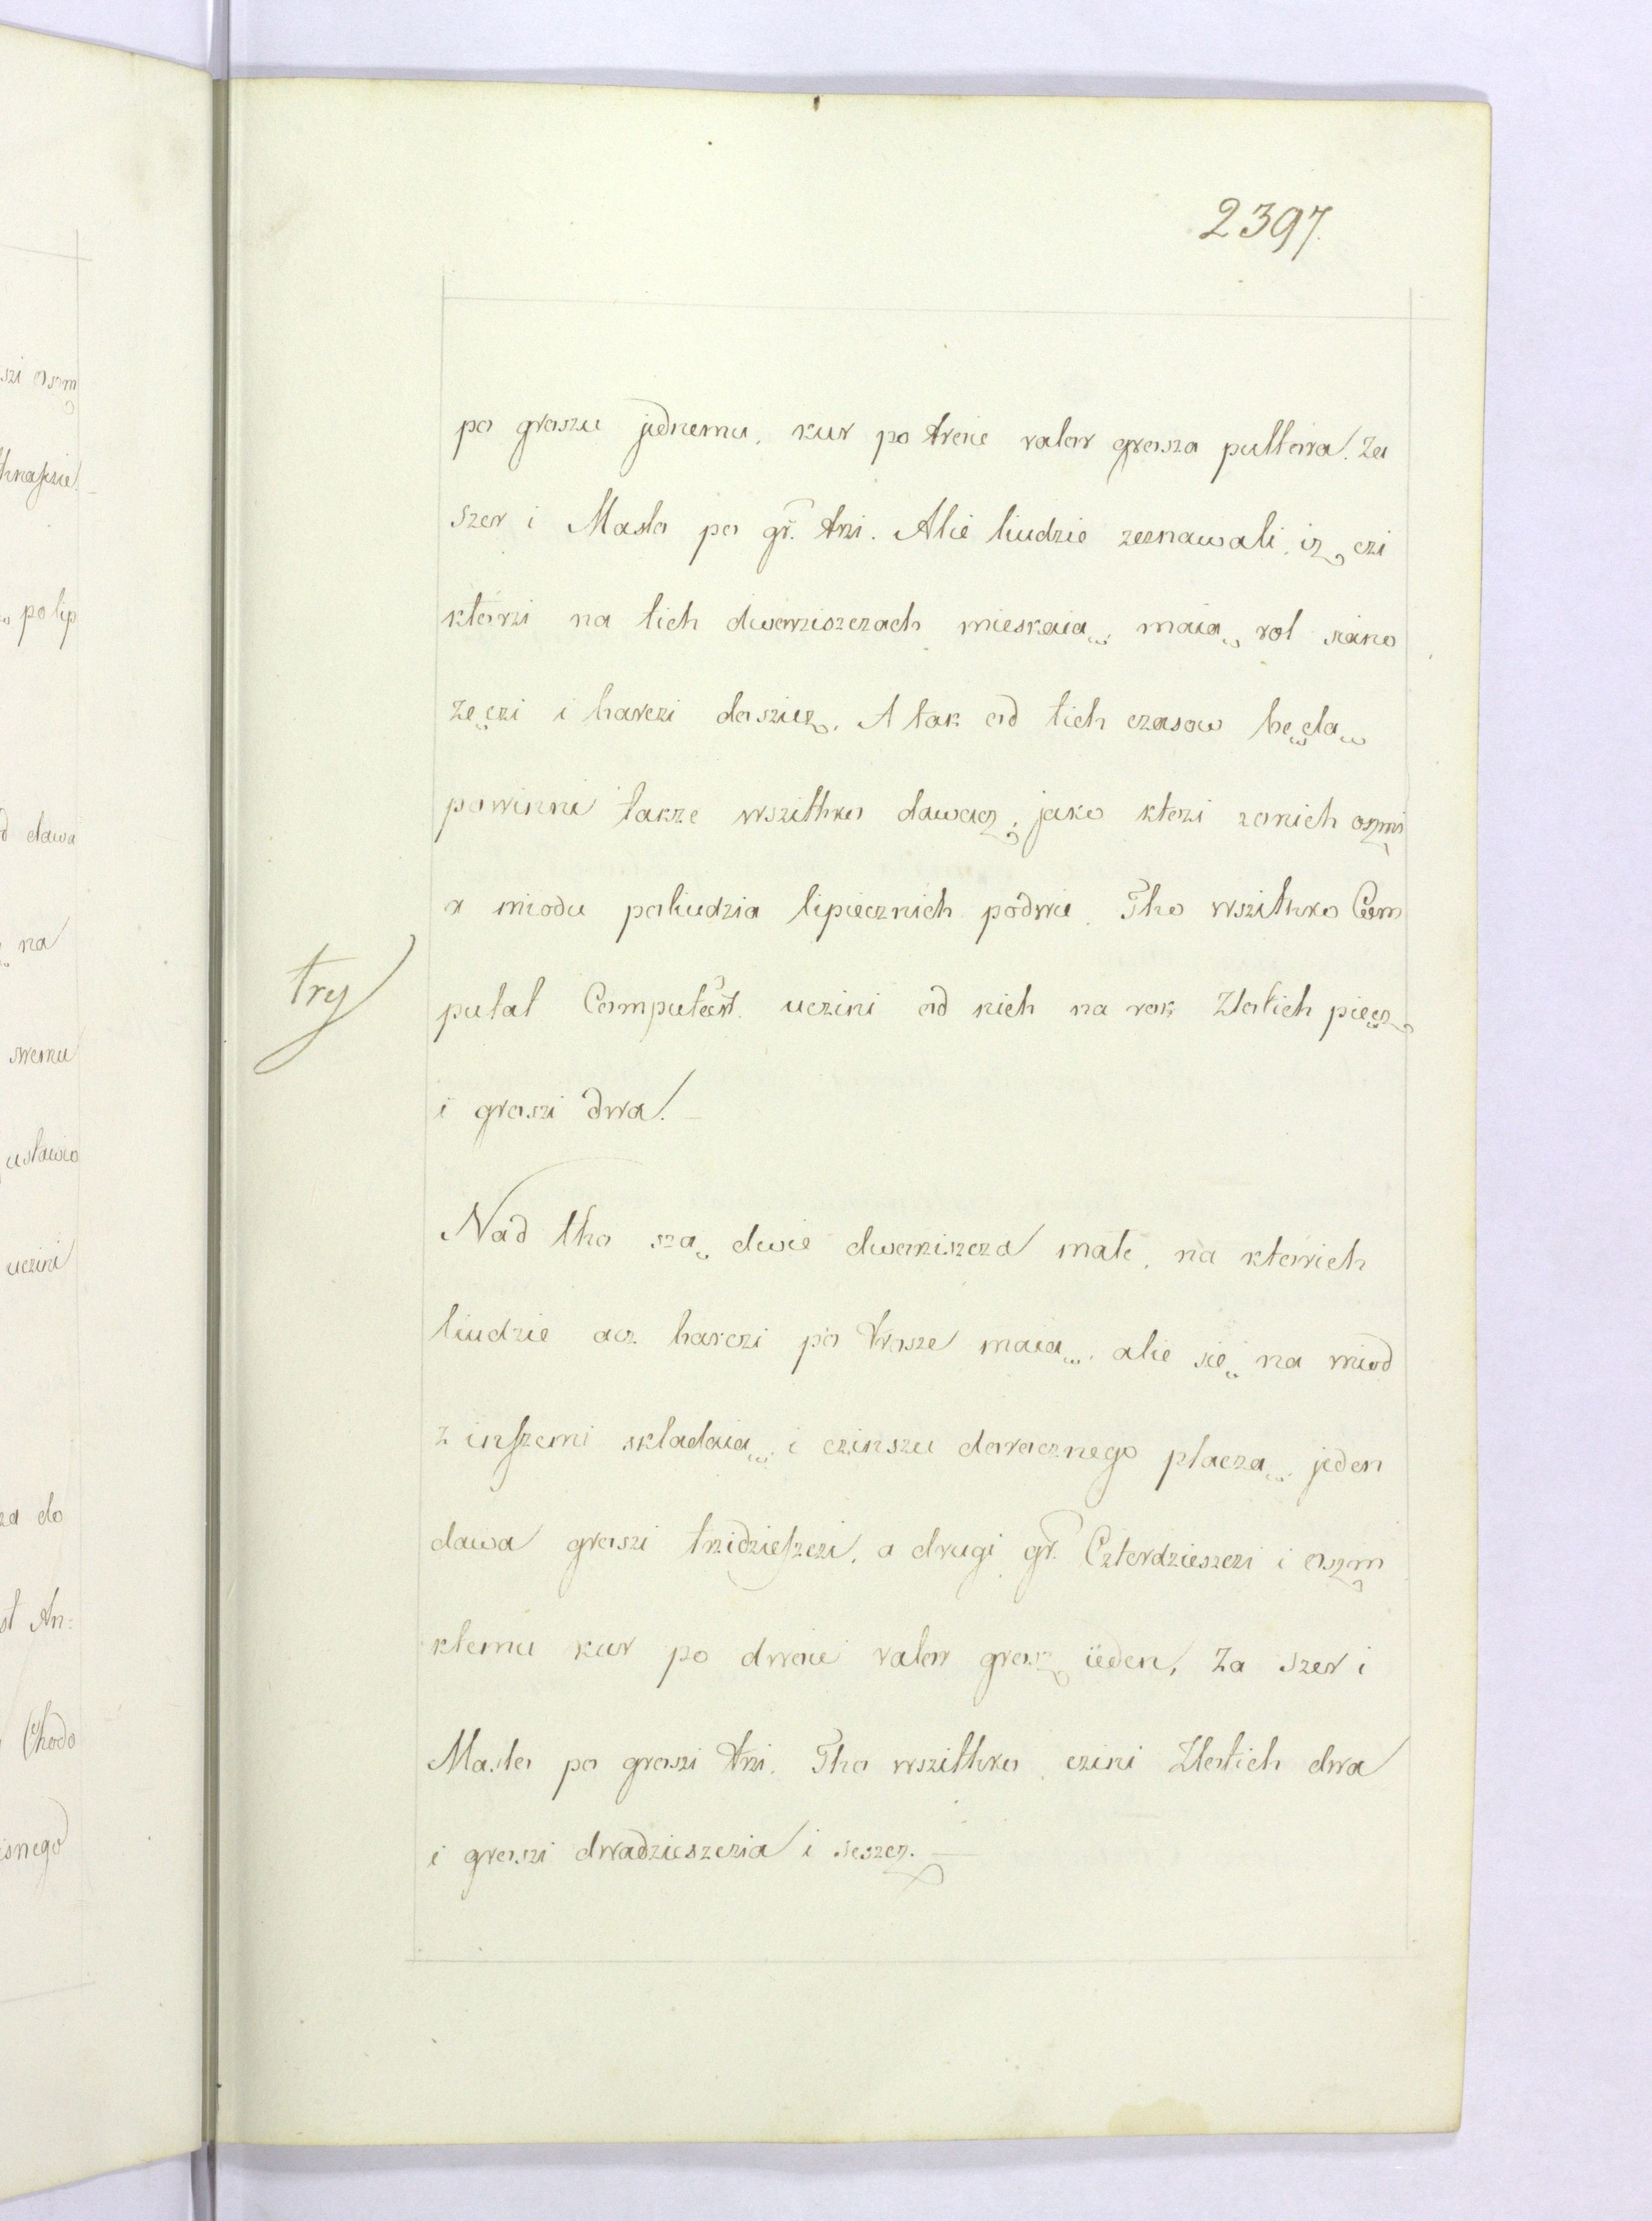 2397.
po groszu jednemu, kur po troie valor grosza pultora. Za
szer i Maslo po gr. trzi. Alie liudzie zeznawali, iz czi
ktorzi na tich dworziszczach mieskaią, maią rol siano
zęczi i barczi doszicz. A tak od tich czasow będą
powinni takze wszithko dawacz, jako ktorzi zonich oszmi
a miodu poliudzia lipiecznich podwie. Tho wszithko Com
putat Computat. uczini od nich na rok Zlotich pięcz
try
i groszi dwa.
Nad tho szą dwie dworziszcza male, na ktorich
liudzie acz barczi po trosze maią, alie się na miod
z inszemi składaią, i czinszu dorocznego płaczą, jeden
dawa groszi trzidzieszczi, a drugi gr. Czterdzieszczi i oszm
ktemu kur po dwoie valor grosz ieden, Za szer i
Maslo po groszi trzi. Tho wszithko czini Zlotich dwa
i groszi dwadzieszczia i seszcz.
szi oszm
po lip
dawa
na
swemu
ustawio
uczini
za do
Chodo